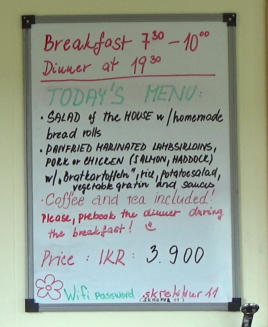 Breakfast 7³⁰ - 10⁰⁰
Dinner at 19³⁰
TODAY'S MENU:
• SALAD of the HOUSE w/homemade
bread rolls
• PANFRIED MARINATED LAMBSIRLOINS,
PORK or CHICKEN (SALMON, HADDOCK)
w/"Bratkartoffeln", rice, potatosalad,
vegetable gratin and sauces
• Coffee and tea included!
Please, prebook the dinner during
the breakfast!
Price: IKR: 3.900
Wifi password: skretibur 11